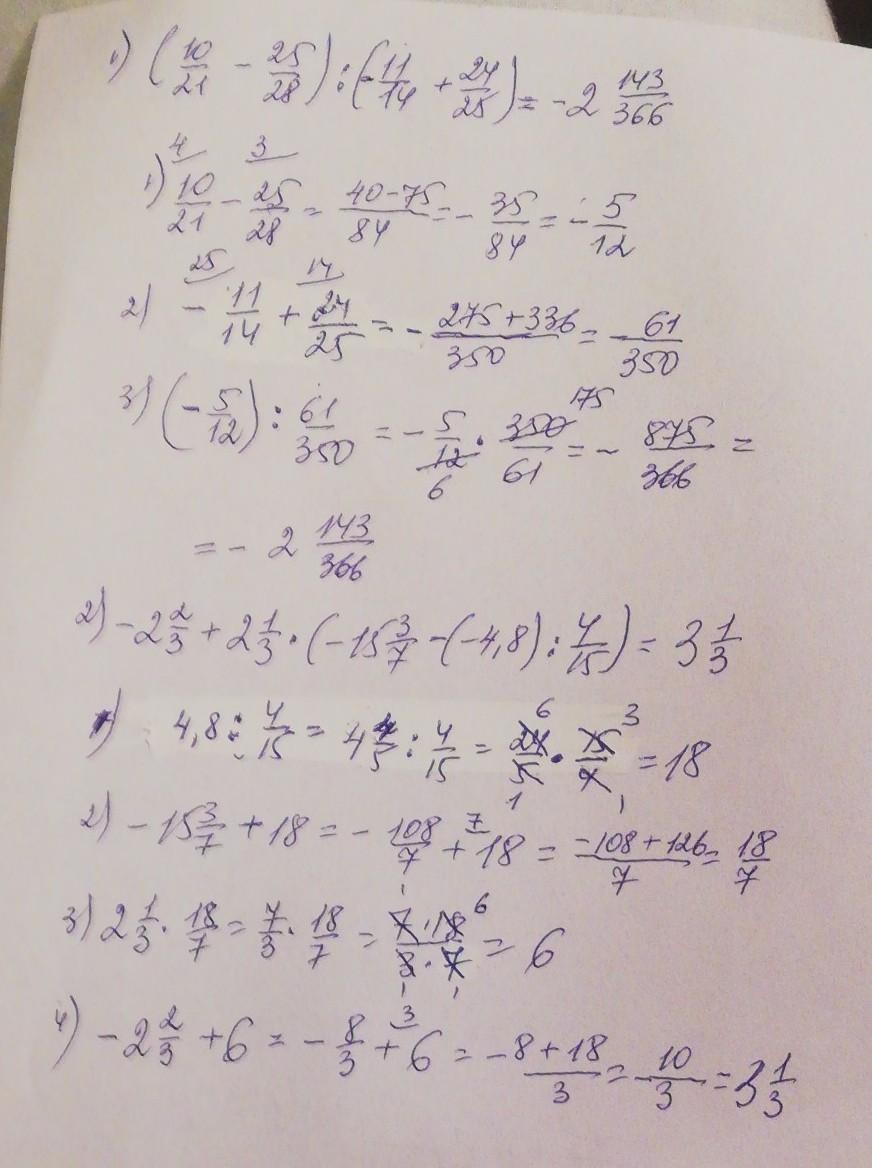 1) (10/21 - 25/28) : (-11/14 + 24/25) = -2 143/366
4 3
1) 10/21 - 25/28 = 40-75/84 = - 35/84 = - 5/12
25 14
2) - 11/14 + 24/25 = - 275+336/350 = - 61/350
3) (- 5/12) : 61/350 = - 5/12 · 350/61 = - 875/366 =
6 175
= - 2 143/366
2) -2 2/3 + 2 1/3 · (-15 3/7 - (-4,8) : 4/15) = 3 1/3
1) 4,8 : 4/15 = 4 4/5 : 4/15 = 24/5 · 15/4 = 18
6 3 1 1
2) - 15 3/7 + 18 = - 108/7 + 18 = -108+126/7 = 18/7
7
3) 2 1/3 · 18/7 = 7/3 · 18/7 = 7·18/3·7 = 6
1 6 1 1
4) - 2 2/3 + 6 = - 8/3 + 6 = -8+18/3 = -10/3 = 3 1/3
3